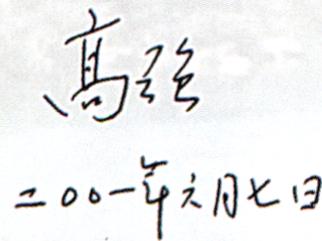 高强
二〇〇一年六月七日